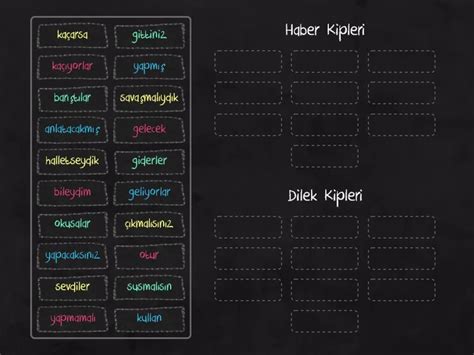 Haber Kipleri
kaçarsa gittiniz
kaçıyorlar yapmış
barıştılar savaşmalıydık
anlatacakmış gelecek
halletseydik giderler
bileydim geliyorlar
Dilek Kipleri
okusalar çıkmalısınız
yapacaksınız otur
sevdiler susmalısın
yapmamalı kullan